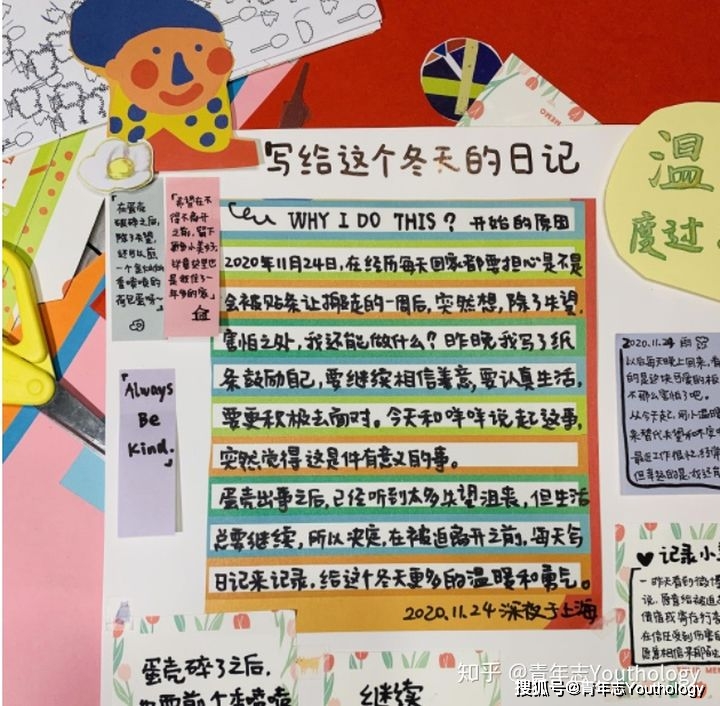 MEMO
写给这个冬天的日记
温
度过
在蛋壳
破碎之后,
除了失望,
还可以煎
一个
香喷喷的
荷包蛋呀~
「希望在不
得不离开
之前,留下
更多小美好;
毕竟这里也
是我住了一
年多的家」
WHY I DO THIS? 开始的原因
2020年11月24日,在经历每天回家都要担心是不是
会被贴条让搬走的一周后,突然想,除了失望,
害怕之外,我还能做什么?昨晚我写了纸
条鼓励自己,要继续相信善意,要认真生活,
要更积极去面对。今天和咩咩说起这事,
突然觉得这是件有意义的事。
蛋壳出事之后,已经听到太多失望沮丧,但生活
总要继续,所以决定,在被迫离开之前,每天写
日记来记录,给这个冬天更多的温暖和勇气。
2020.11.24 深夜于上海
「Always
Be
Kind.」
2020.11.24 雨
以后每天晚上回来,看
的是这块可爱的板
不那么害怕了吧。
从今天起,用小温暖
来替代失望和不安
最近工作很忙,经常
但幸运的是,我还有
♥记录小
一昨天看到微博
说,愿意给被迫
借宿或寄存行李
在信任受到伤害
愿意相信来帮助
MEMO
蛋壳碎了之后,
继续
知乎 @青年志Youthology
搜狐号@青年志Youthology